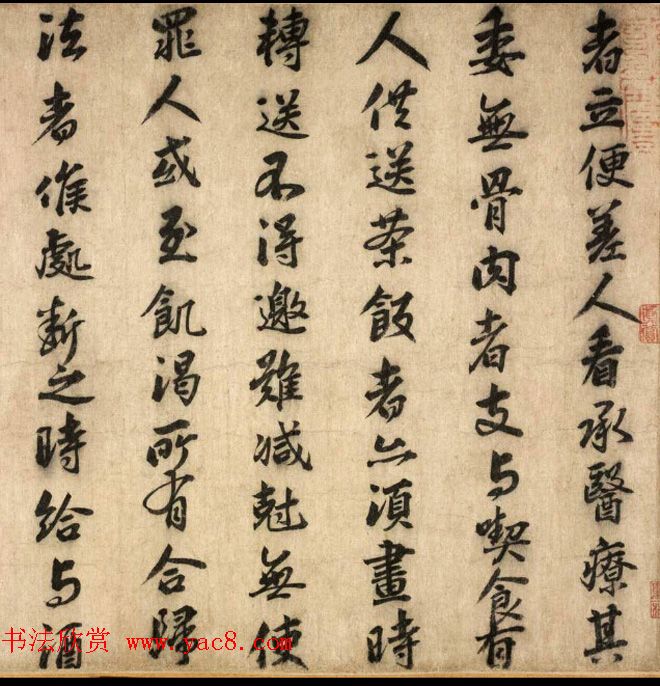 者立便差人看承醫療其
委無骨肉者支与喫食有
人供送茶飯者亦須畫時
轉送不得邀難減尅無使
罪人或至飢渴所有合歸
法者候處断之時給与酒
书法欣赏 www.yac8.com